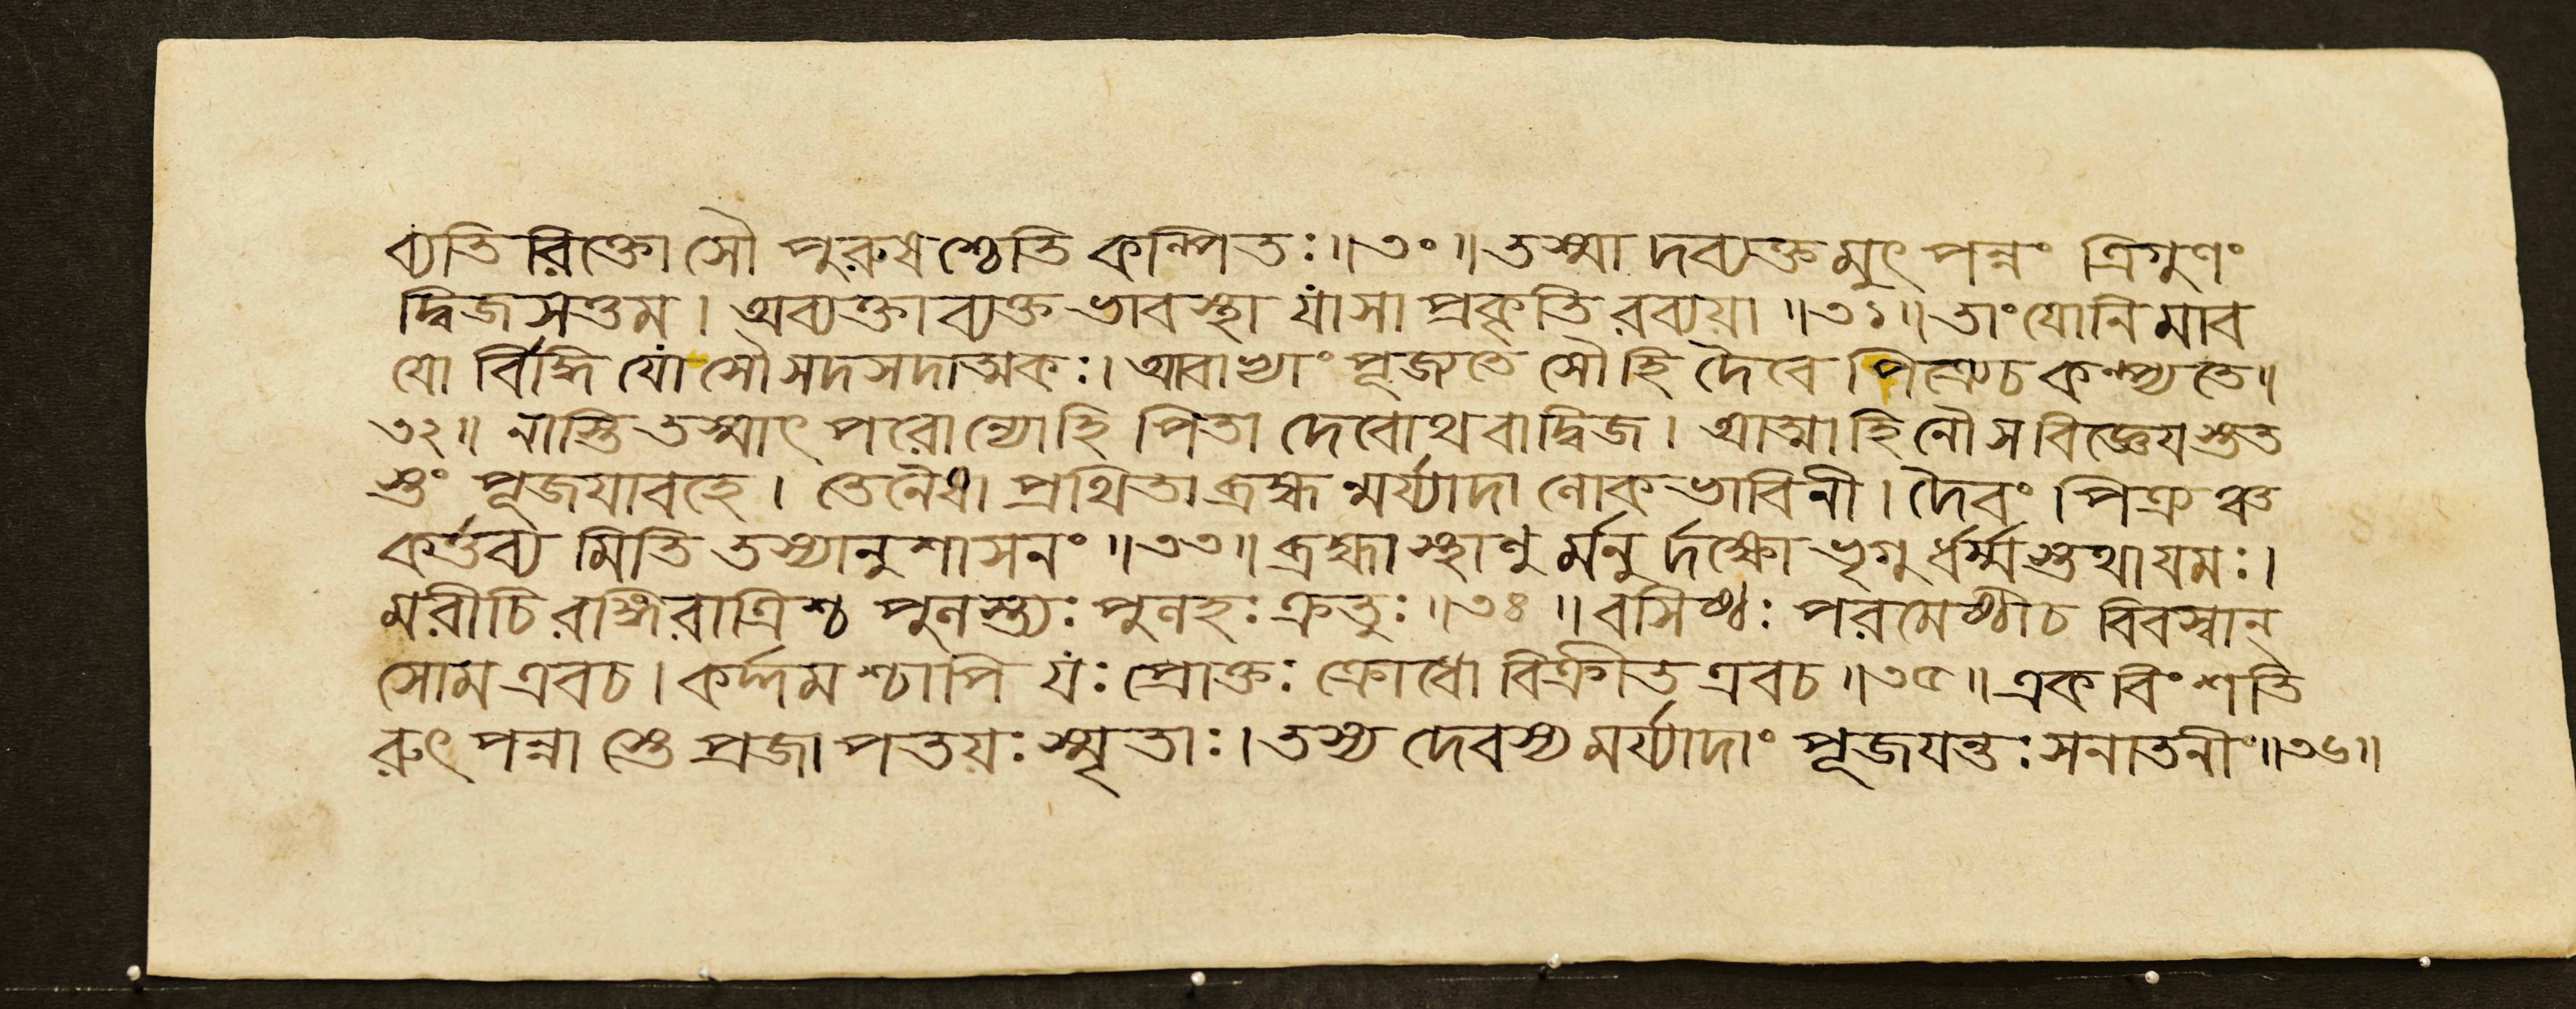 ব্যতিরিক্তোসৌ পুরুষশ্চেতি কল্পিতঃ॥৩০॥তস্মাদব্যক্তমুৎপন্নং ত্রিগুণং
দ্বিজসত্তম। অব্যক্তাব্যক্তভাবস্থা যাসা প্রকৃতিরব্যয়া॥৩১॥তাংযোনিমাব
যো র্বিদ্ধি যোসৌসদসদাত্মকঃ। আবাভ্যাং পূজ্যতে সৌহি দৈবে পিত্রেচ কল্প্যতে॥
৩২॥ নাস্তি তস্মাৎ পরোন্যোহি পিতা দেবোথবাদ্বিজ। আত্মাহিনৌসবিজ্ঞেযস্তত
স্তং পূজযাবহে। তেনৈষা প্রথিতা ব্রহ্মন্মর্য্যাদা লোকভাবিনী। দৈবং পিত্রঞ্চ
কর্ত্তব্যমিতি তস্যানুশাসনং॥৩৩॥ব্রহ্মাস্থাণুর্মনুর্দক্ষো ভৃগুর্ধর্ম্মস্তথাযমঃ।
মরীচিরঙ্গিরাত্রিশ্চ পুলস্ত্যঃ পুলহঃ ক্রতুঃ॥৩৪॥বসিষ্ঠঃ পরমেষ্ঠীচ বিবস্বান্
সোমএবচ। কর্দ্দমশ্চাপি যঃ প্রোক্তঃ ক্রোধো বিক্রীতএবচ॥৩৫॥একবিংশতি
রুৎপন্না স্তে প্রজাপতয়ঃ স্মৃতাঃ। তস্য দেবস্য মর্য্যাদাং পূজযন্তঃ সনাতনীং॥৩৬॥